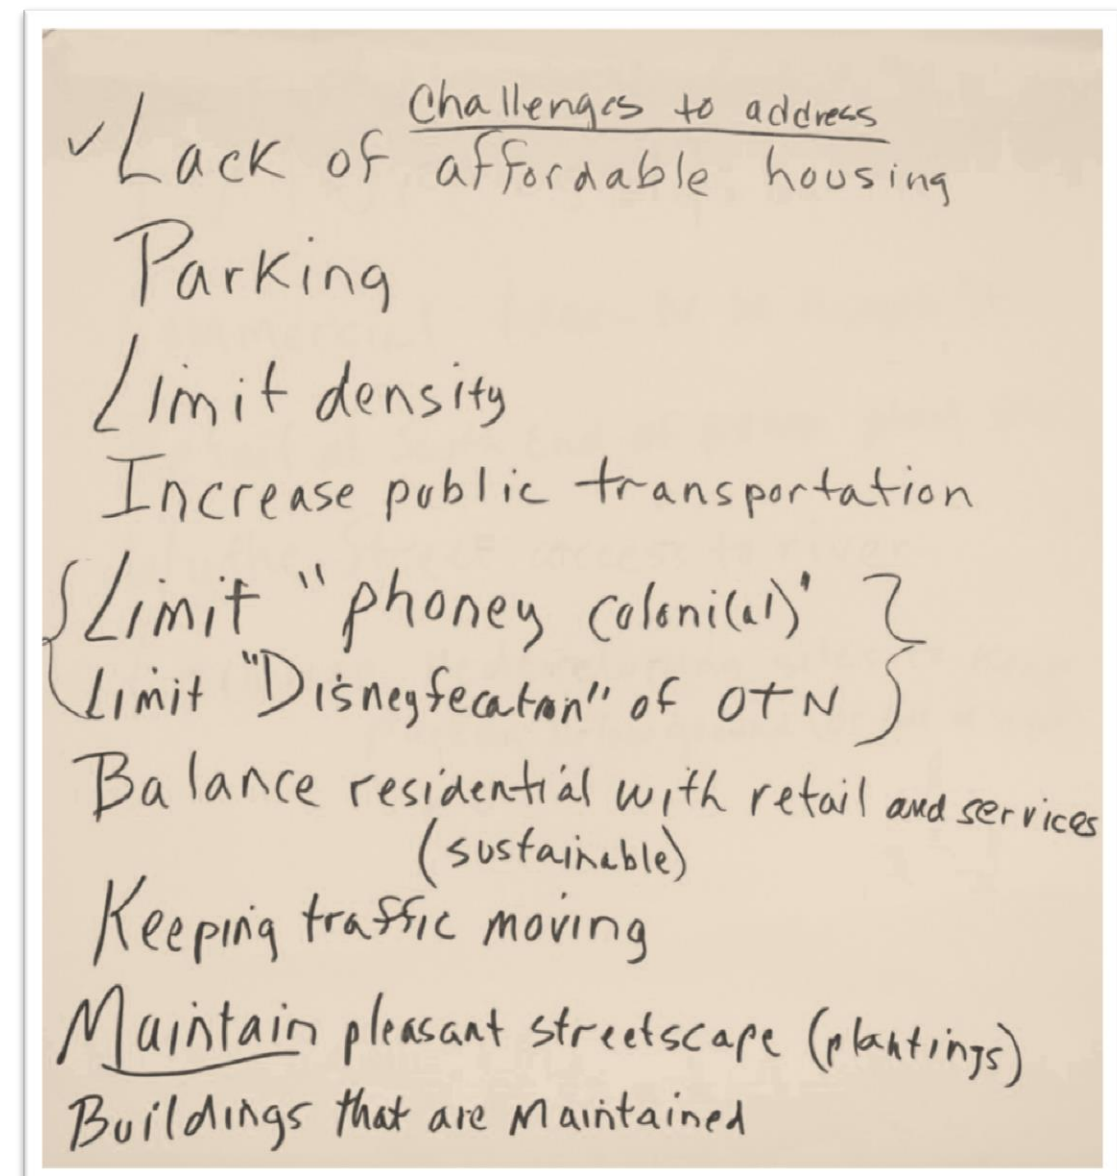 Challenges to address
✓ Lack of affordable housing
Parking
Limit density
Increase public transportation
{Limit "phoney coloni(al)' }
{Limit "Disneyfecaton" of OTN }
Balance residential with retail and services
(sustainable)
Keeping traffic moving
Maintain pleasant streetscape (plantings)
Buildings that are Maintained